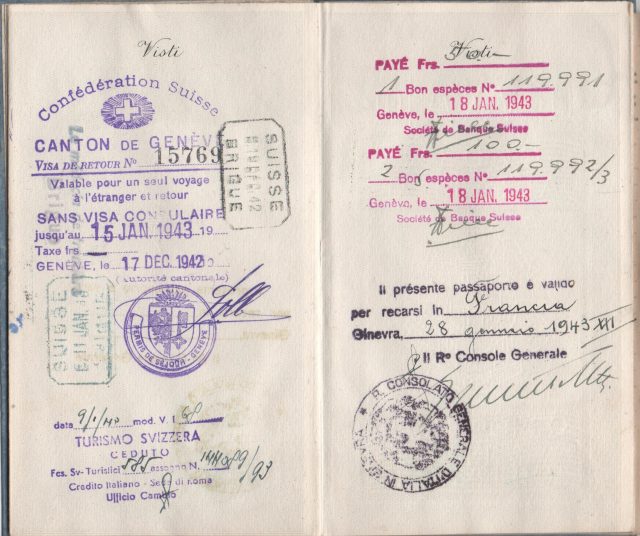 Visti
Confédération Suisse
CANTON DE GENÈVE
VISA DE RETOUR No 15769
Valable pour un seul voyage
à l'étranger et retour
SANS VISA CONSULAIRE
jusqu'au 15 JAN. 1943 19
Taxe frs
GENÈVE, le 17 DEC. 1942
(autorité cantonale)
SUISSE
BRIGUE
SUISSE
11 JAN.
PERMIS DE SÉJOUR - GENÈVE
data mod. V. I.
TURISMO SVIZZERA
CEDUTO
Fcs. Sv-Turistici 585 assegno N.
Credito Italiano - Sede di Roma
Ufficio Cambio
Visti
PAYÉ Frs.
1 Bon espèces No 119.991
Genève, le 18 JAN. 1943
Société de Banque Suisse
PAYÉ Frs. 100.-
2 Bon espèces No 119.992/3
Genève, le 18 JAN. 1943
Société de Banque Suisse
Il présente passaporto è valido
per recarsi in Francia
Ginevra, 28 gennaio 1943 XXI
Il Ro Console Generale
R. CONSOLATO GENERALE D'ITALIA IN GINEVRA